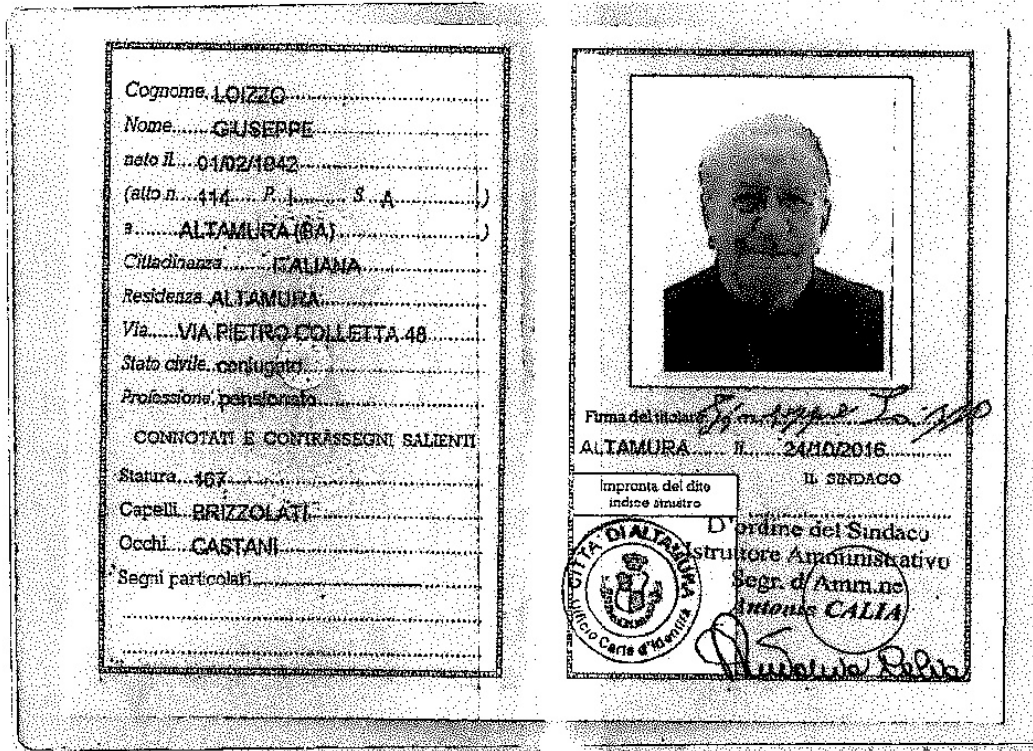 Cognome LOIZZO
Nome GIUSEPPE
nato il 01/02/1942
(atto n. 414 P. I S. A )
a ALTAMURA (BA) )
Cittadinanza ITALIANA
Residenza ALTAMURA
Via VIA PIETRO COLLETTA 48
Stato civile coniugato
Professione pensionato
CONNOTATI E CONTRASSEGNI SALIENTI
Statura 167
Capelli BRIZZOLATI
Occhi CASTANI
Segni particolari
Firma del titolare Giuseppe Loizzo
ALTAMURA il 24/10/2016
IL SINDACO
Impronta del dito
indice sinistro
D'ordine del Sindaco
Istruttore Amministrativo
Segr. d'Amm.ne
CALIA
CITTA' DI ALTAMURA
Ufficio Carte d'Identità